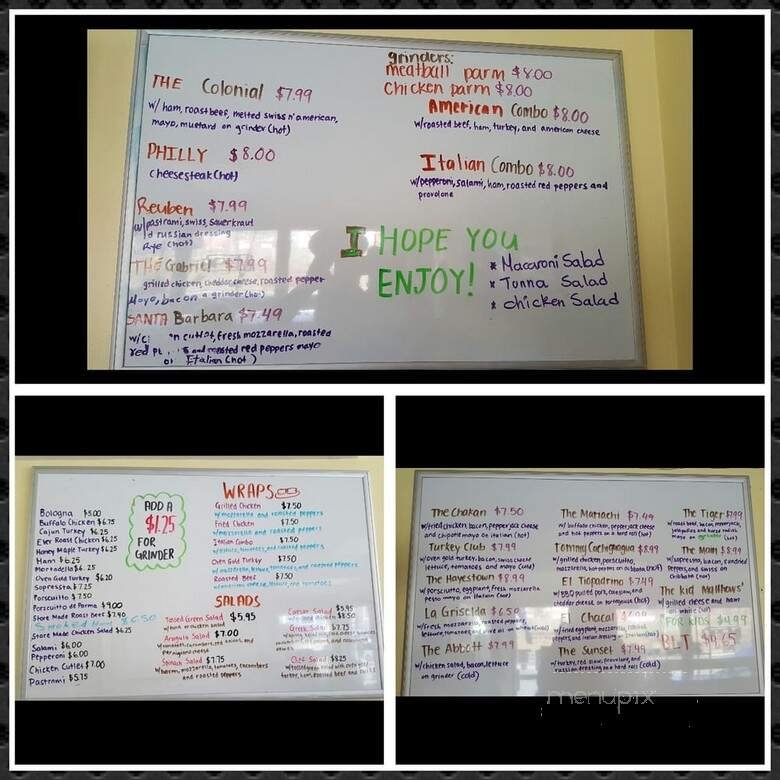 THE Colonial $7.99
w/ ham, roast beef, melted swiss n' american,
mayo, mustard on grinder (hot)
PHILLY $8.00
cheesesteak (hot)
Reuben $7.99
w/pastrami, swiss, sauerkraut
russian dressing
Rye (hot)
THE Gabriel $7.99
grilled chicken, cheddar cheese, roasted pepper
Mayo, bacon a grinder (hot)
SANTA Barbara $7.49
cutlet, fresh mozzarella, roasted
red and roasted red peppers mayo
Italian (hot)
grinders:
meatball parm $8.00
chicken parm $8.00
AMERICAN Combo $8.00
w/roasted beef, ham, turkey, and american cheese
Italian Combo $8.00
w/pepperoni, salami, ham, roasted red peppers and
provolone
I HOPE YOU
ENJOY!
* Macaroni Salad
* Tunna Salad
* chicken Salad
Bologna $5.00
Buffalo Chicken $6.75
Cajun Turkey $6.25
Ever Roast Chicken $6.25
Honey Maple Turkey $6.25
Ham $6.25
Mortadella $6.25
Oven Gold Turkey $6.20
Sopresta $7.25
Porscuitto $7.50
Porscuitto de Parma $9.00
Store Made Roast Beef $7.40
$6.50
Store Made Chicken Salad $6.25
Salami $6.00
Pepperoni $6.00
Chicken Cutlet $7.00
Pastrami $5.75
ADD A
$1.25
FOR
GRINDER
WRAPS
Grilled Chicken $7.50
w/mozzarella and roasted peppers
Fried Chicken $7.50
w/mozzarella and roasted peppers
Italian Combo $7.50
w/lettuce, tomatoes, and roasted peppers
Oven Gold Turkey $7.50
w/mozzarella, lettuce, tomatoes, and roasted peppers
Roasted Beef $7.50
cheese, lettuce, and tomatoes
SALADS
Tossed Green Salad $5.95
Arugula Salad $7.00
Spinach Salad $7.75
w/bacon, mozzarella, tomatoes, cucumbers
and roasted peppers
Caesar Salad $5.95
Greek Salad $7.75
Chef Salad $8.25
turkey, ham, roasted beef and
The Chakan $7.50
w/fried chicken, bacon, pepperjack cheese
and chipotle mayo on italian (hot)
Turkey Club $7.99
w/oven gold turkey, bacon, swiss cheese
lettuce, tomatoes, and mayo (cold)
The Hayestown $8.99
w/porsciutto, eggplant, fresh mozzarella
pesto mayo on Italian (hot)
La Griselda $6.50
w/fresh mozzarella, roasted peppers,
lettuce, tomatoes,
The Abbott $7.99
w/chicken salad, bacon, lettuce
on grinder (cold)
The Mariachi $7.49
w/ buffalo chicken, pepperjack cheese
and hot peppers on a hard roll (hot)
Tommy $8.99
w/grilled chicken, porsciutto,
mozzarella, hot peppers on ciabatta (hot)
El Tiopadrino $7.49
w/BBQ pulled pork, and
cheddar cheese on (hot)
El Chacal
w/fried eggplant, mozzarella,
The Sunset $7.49
w/turkey, red slaw, provolone, and
russian dressing on a hard roll (cold)
The Tiger $7.99
w/roast beef, bacon, pepperjack,
mayo on grinder (hot)
The Main $8.99
w/supresta, bacon,
peppers, and swiss on
Ciabatta (hot)
The kid Matthews'
w/grilled cheese and ham
FOR KIDS $4.99
BLT $4.65
menupix